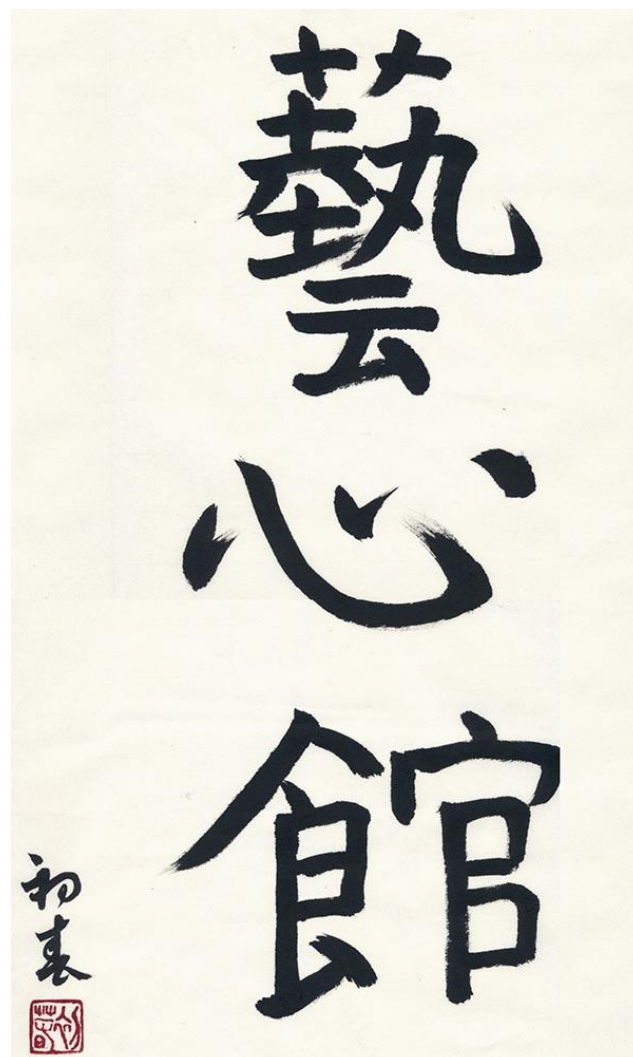 藝心館
初春